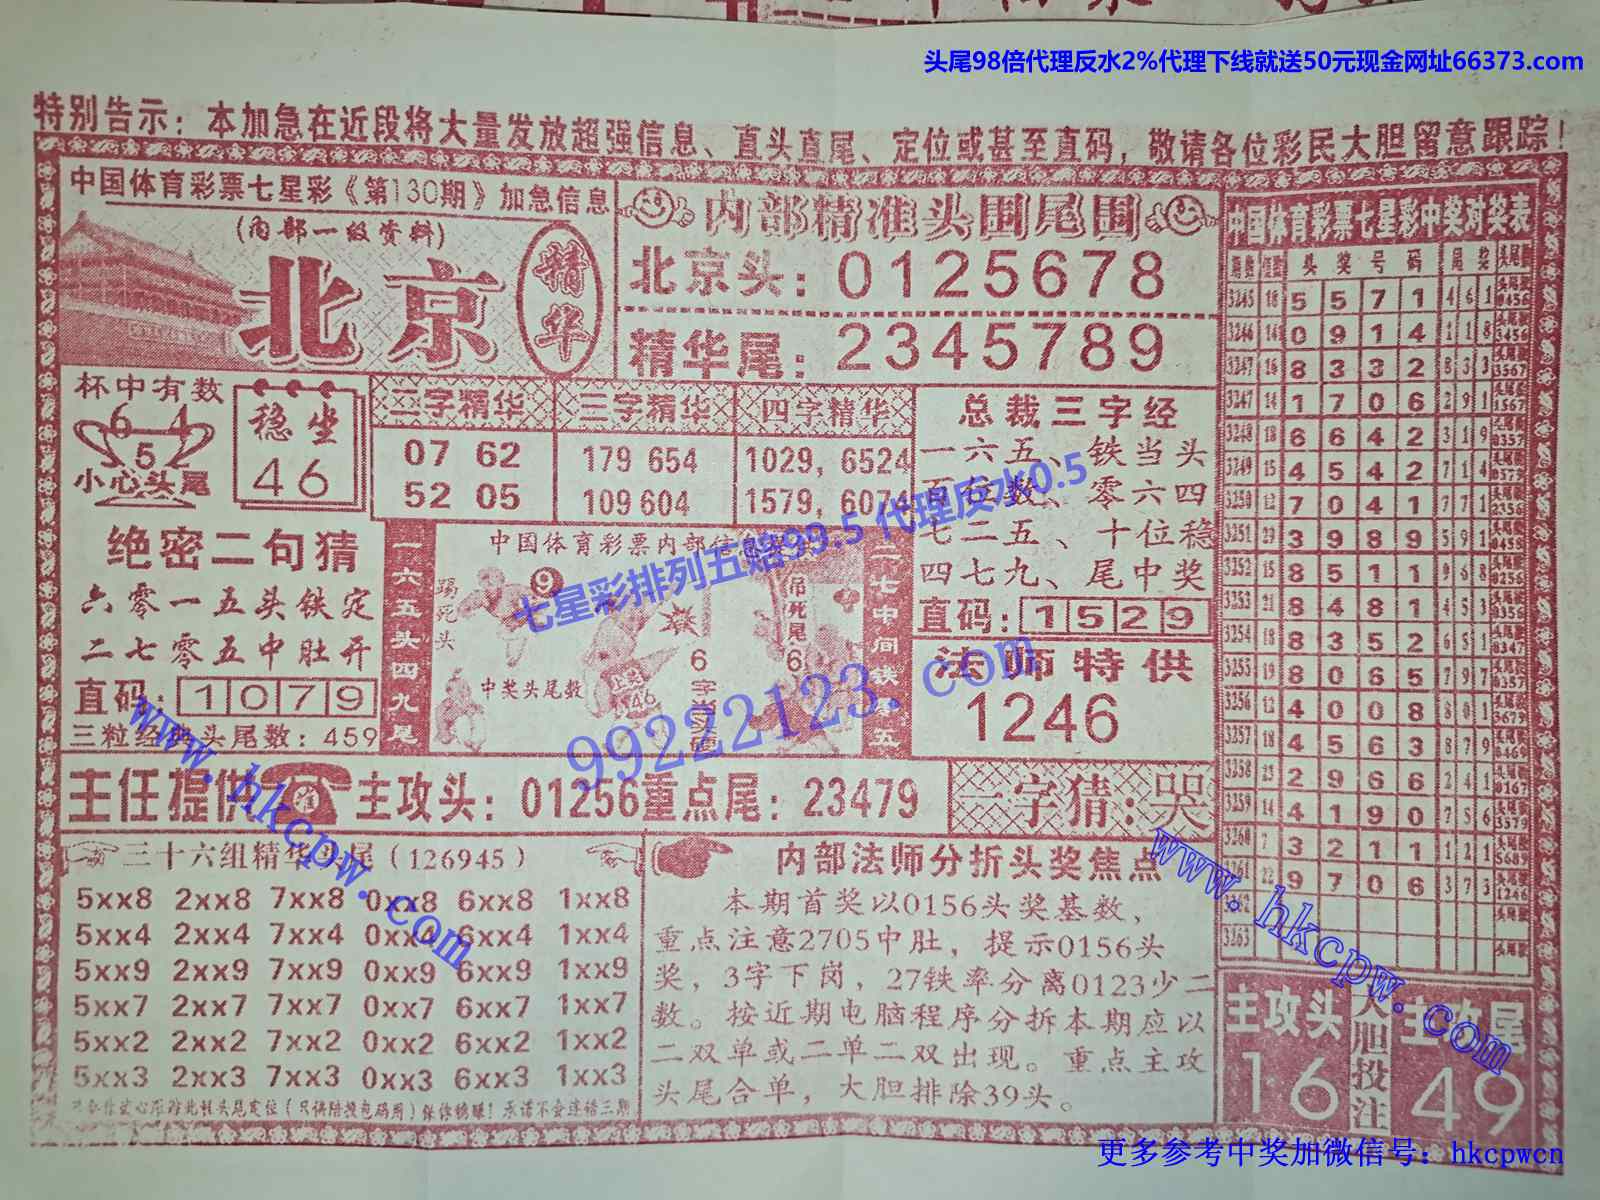 头尾98倍代理反水2%代理下线就送50元现金网址66373.com
特别告示：本加急在近段将大量发放超强信息、直头直尾、定位或甚至直码，敬请各位彩民大胆留意跟踪！
中国体育彩票七星彩《第130期》加急信息
(内部一级资料)
北京
精华
内部精准头围尾围
北京头：0125678
精华尾：2345789
杯中有数
6 4
5
小心头尾
稳坐
46
二字精华
07 62
52 05
三字精华
179 654
109 604
四字精华
1029, 6524
1579, 6074
总裁三字经
一六五、铁当头
百位数、零六四
七二五、十位稳
四七九、尾中奖
直码：1529
法师特供
1246
绝密二句猜
六零一五头铁定
二七零五中肚开
直码：1079
三粒经典头尾数：459
一六五头四九尾
中国体育彩票内部信息
踢死头
9
吊死尾
6
6字尚头硬
中奖头尾数
46
七星彩排列五赔99.5 代理反水0.5
99222123.com
www.hkcpw.com
主任提供
主攻头：01256重点尾：23479
一字猜：哭
三十六组精华头尾(126945)
5xx8 2xx8 7xx8 0xx8 6xx8 1xx8
5xx4 2xx4 7xx4 0xx4 6xx4 1xx4
5xx9 2xx9 7xx9 0xx9 6xx9 1xx9
5xx7 2xx7 7xx7 0xx7 6xx7 1xx7
5xx2 2xx2 7xx2 0xx2 6xx2 1xx2
5xx3 2xx3 7xx3 0xx3 6xx3 1xx3
内部法师分折头奖焦点
本期首奖以0156头奖基数，
重点注意2705中肚，提示0156头
奖，3字下岗，27铁率分离0123少二
数。按近期电脑程序分拆本期应以
二双单或二单二双出现。重点主攻
头尾合单，大胆排除39头。
中国体育彩票七星彩中奖对奖表
期数 头奖号码 尾奖
3245 18 5 5 7 1 4 6 1 0456
3246 14 0 9 1 4 1 1 8 3456
3247 16 8 3 3 2 8 3 3 3567
3247 14 1 7 0 6 2 9 1 1567
3248 18 6 6 4 2 3 1 9 0357
3249 15 4 5 4 2 7 1 4 0379
3250 12 7 0 4 1 7 7 1 2356
3251 29 3 9 8 9 5 9 1 0458
3252 15 8 5 1 1 9 6 8 0256
3253 21 8 4 8 1 4 5 3 0356
3254 18 8 3 5 2 6 5 1 0347
3255 19 8 0 6 5 7 9 7 0357
3256 12 4 0 0 8 8 0 1 3679
3257 18 4 5 6 3 8 7 9 0469
3258 23 2 9 6 6 2 4 1 0167
3259 14 4 1 9 0 7 5 6 3579
3260 7 3 2 1 1 1 2 1 5689
3261 22 9 7 0 6 3 7 3 1246
3262
3263
www.hkcpw.com
主攻头
16
大胆投注
主攻尾
49
更多参考中奖加微信号：hkcpwcn